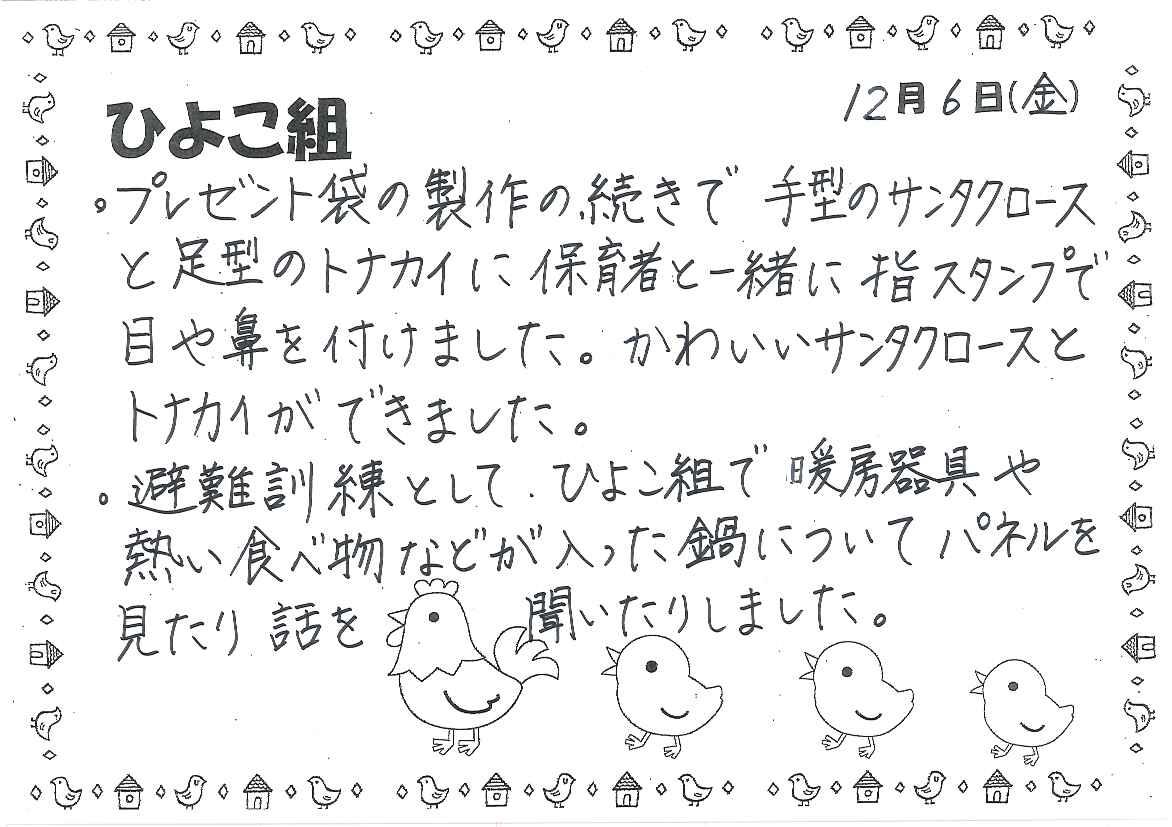 12月6日(金)
ひよこ組
。プレゼント袋の製作の続きで 手型のサンタクロース
と足型のトナカイに保育者と一緒に指スタンプで
目や鼻を付けました。かわいいサンタクロースと
トナカイができました。
。避難訓練として、ひよこ組で 暖房器具や
熱い食べ物などが入った鍋についてパネルを
見たり話を 聞いたりしました。